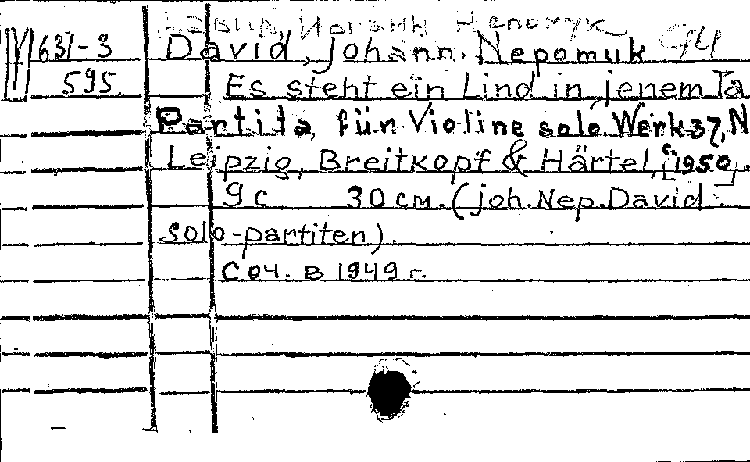 Давид Иоганн Непомук
М 637-3 David, Johann Nepomuk
595 Es steht ein Lind in jenem Ta
Partita, für Violine solo. Werk 37, N
Leipzig, Breitkopf & Härtel, c1950,
9 c 30 см. (Joh. Nep. David:
Solo-partiten).
Соч. в 1949 г.